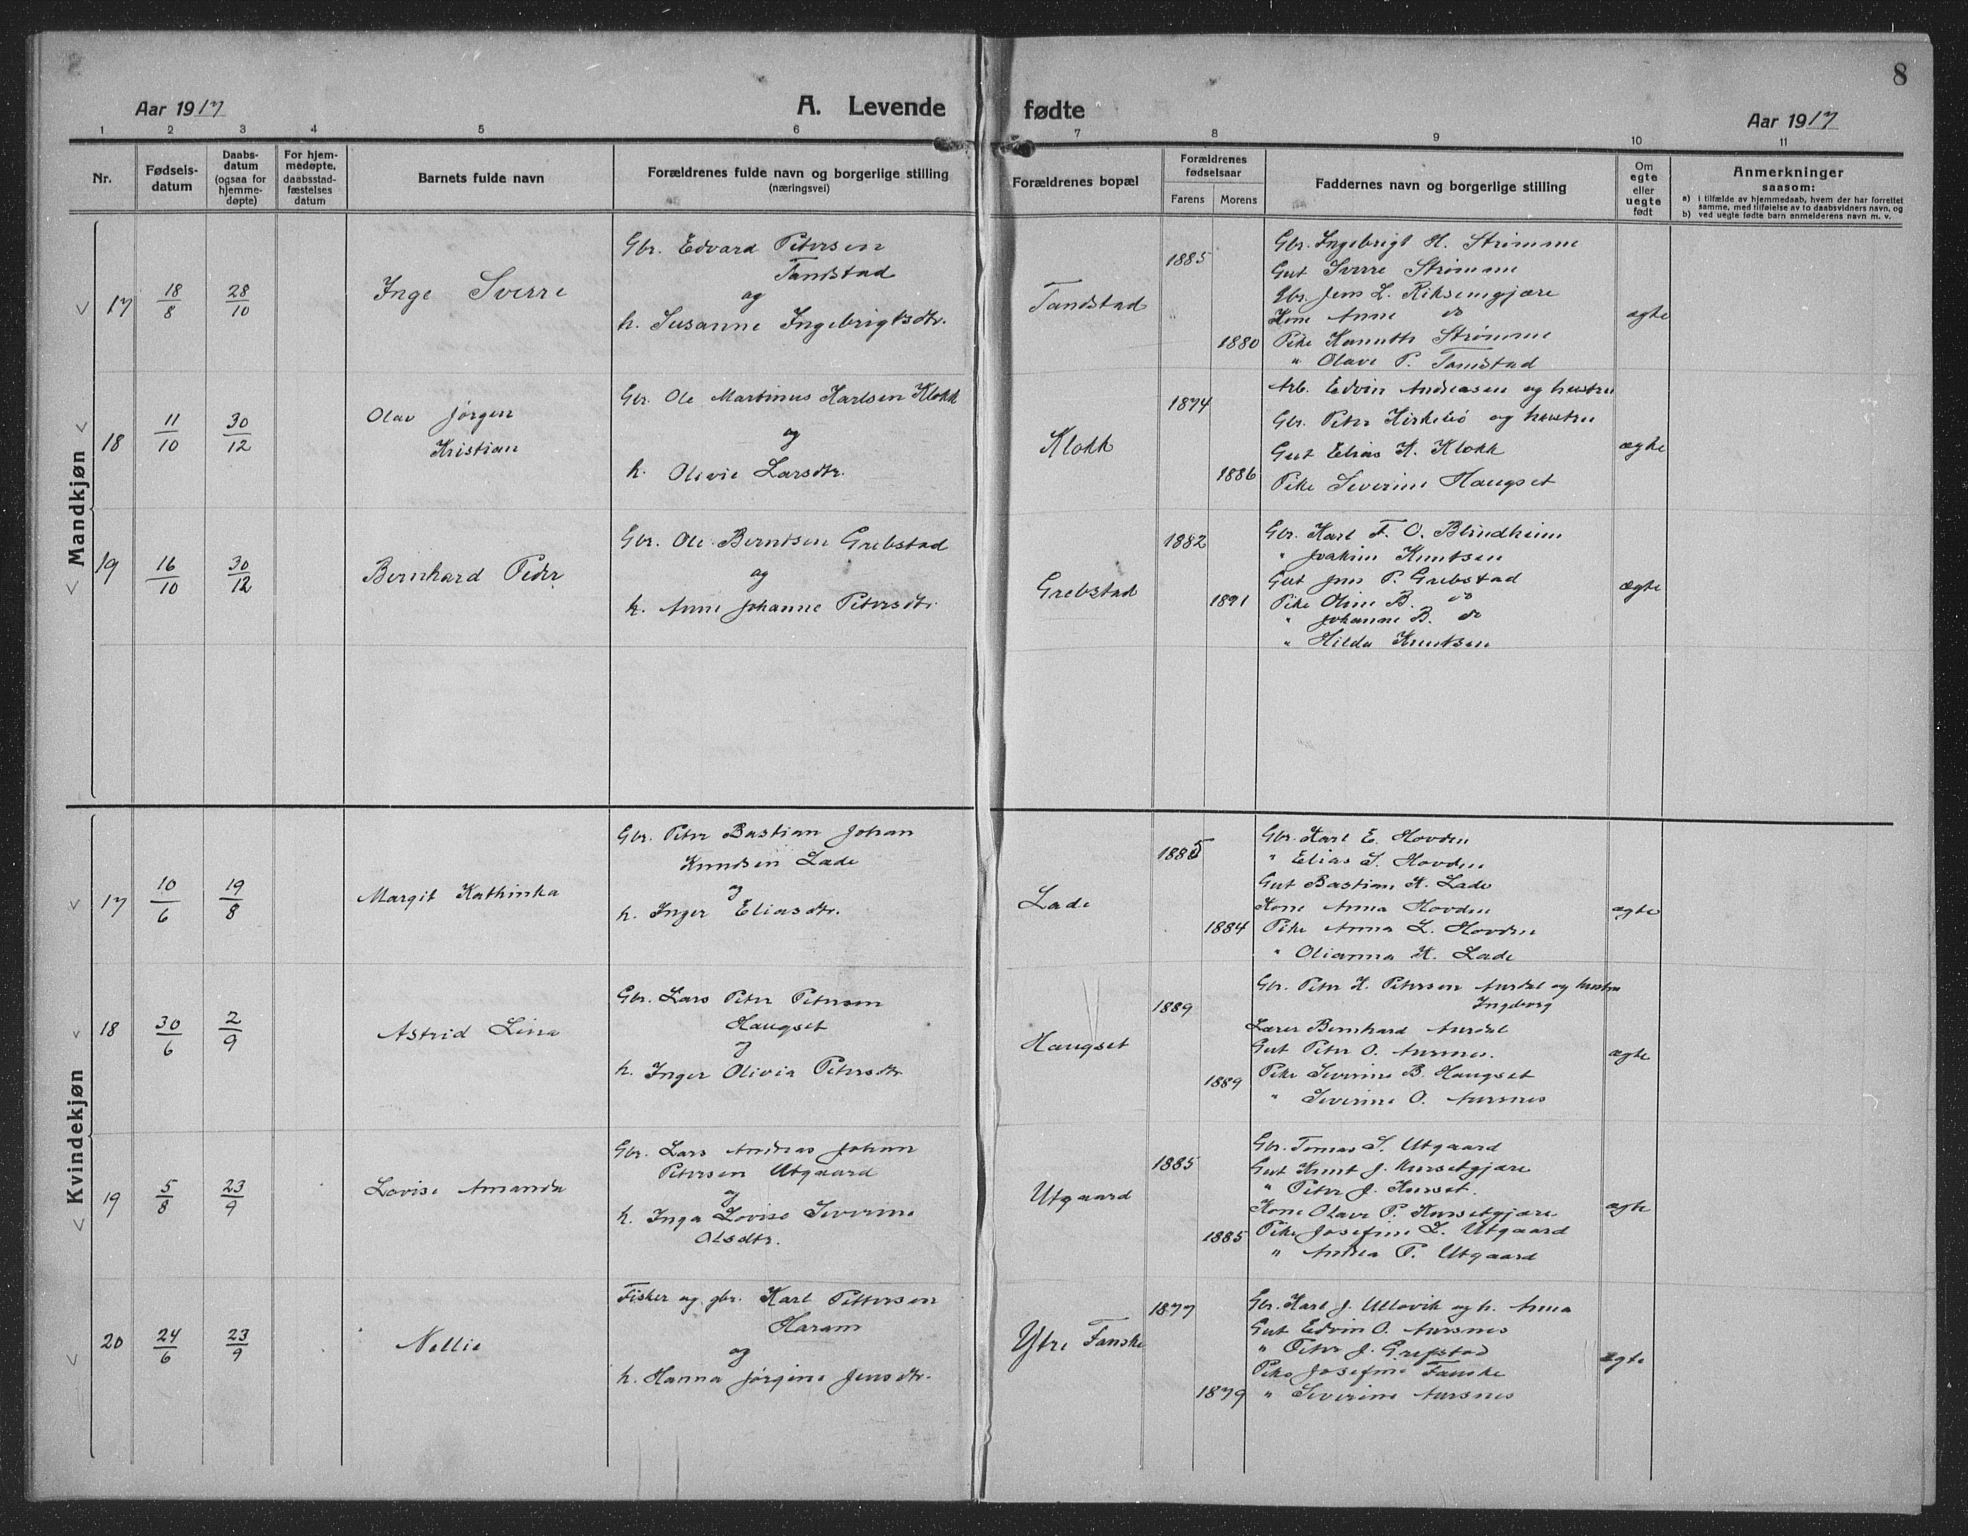 8
Aar 1917
A. Levende fødte
Aar 1917
1 2 3 4 5 6 7 8 9 10 11
Nr.
Fødselsdatum
Daabsdatum (ogsaa for hjemmedøpte)
For hjemmedøpte, daabsstadfæstelses datum
Barnets fulde navn
Forældrenes fulde navn og borgerlige stilling
(næringsvei)
Forældrenes bopæl
Forældrenes fødselsaar
Farens Morens
Faddernes navn og borgerlige stilling
Om egte eller uegte født
Anmerkninger
saasom:
a) i tilfælde av hjemmedaab, hvem der har forrettet
samme, med tilføielse av to daabsvidners navn, og
b) ved uegte fødte barn anmelderens navn m. v.
Mandkjøn
17
18/8
28/10
Inge Sverre
Gbr. Edvard Petersen
Tandstad
og
h. Susanne Ingebrigtsdtr.
Tandstad
1885
1880
Gbr. Ingebrigt H. Strømme
Gut Sverre Strømme
Gbr. Jens L. Riksemgjære
Kone Anne do
Pike Strømme
" Olave P. Tandstad
ægte
18
11/10
30/12
Olav Jørgen
Kristian
Gbr. Ole Martinus Karlsen Klokk
og
h. Olivie Larsdtr.
Klokk
1874
1886
Arb. Edvin Andreasen og hustru
Gbr. Peter Kirkebø og hustru
Gut Elias K. Klokk
Pike Severine Haugset
ægte
19
16/10
30/12
Bernhard Peder
Gbr. Ole Berntsen Grebstad
og
h. Anne Johanne Petersdtr.
Grebstad
1882
1891
Gbr. Karl F. O. Blindheim
" Joakim Knutsen
Gut Jens P. Grebstad
Pike Oline B. do
" Johanne B. do
" Hilda Knutsen
ægte
Kvindekjøn
17
10/6
19/8
Margit Kathinka
Gbr. Peter Bastian Johan
Knudsen Lade
og
h. Inger Eliasdtr.
Lade
1885
1884
Gbr. Karl E. Hovden
" Elias S. Hovden
Gut Bastian K. Lade
Kone Anna Hovden
Pike Anna L. Hovden
" Olianna K. Lade
ægte
18
30/6
2/9
Astrid Lina
Gbr. Lars Peter Petersen
Haugset
og
h. Inger Olivia Petersdtr.
Haugset
1889
1889
Gbr. Peter K. Petersen Aursdal og hustru
Ingeborg
Lærer Bernhard Aurdal
Gut Peter O. Aursnes.
Pike Severine B. Haugset
" Severine O. Aursnes
ægte
19
5/8
23/9
Lovise Amanda
Gbr. Lars Andreas Johan
Petersen Utgaard
og
h. Inga Lovise Severine
Olsdtr.
Utgaard
1885
1885
Gbr. Tomas S. Utgaard
Gut Knut J. Kursetgjære
" Peter J. Kurset.
Kone Olave P. Kursetgjære
Pike Josefine L. Utgaard
" Andrea P. Utgaard
ægte
20
24/6
23/9
Nellie
Fisker og gbr. Karl Pettersen
Haram
og
h. Hanna Jørgine Jensdtr.
Ytre Fanske
1877
1879
Gbr. Karl J. Ullavik og h. Anna
Gut Edvin O. Aursnes
" Peter J. Grefstad
Pike Josefine Fanske
" Severine Aursnes
ægte